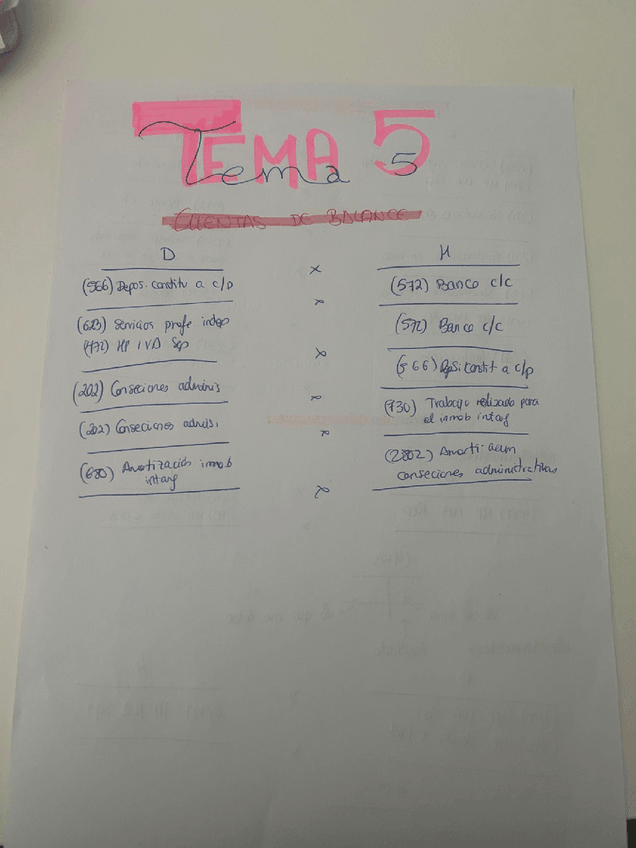 TEMA 5
Tema 5
CUENTAS DE BALANCE
D H
x
(566) Depos. constitu a c/p (572) Banco c/c
x
(623) Servicios profe indep (572) Banco c/c
(472) HP IVA Sop
x
(202) Conseciones adminis (566) constit a c/p
x
(202) Conseciones (730) Trabajo realizado para
el inmob intang
x
(680) Amortización inmob (2802) Amorti acum
intang conseciones administrativas
x